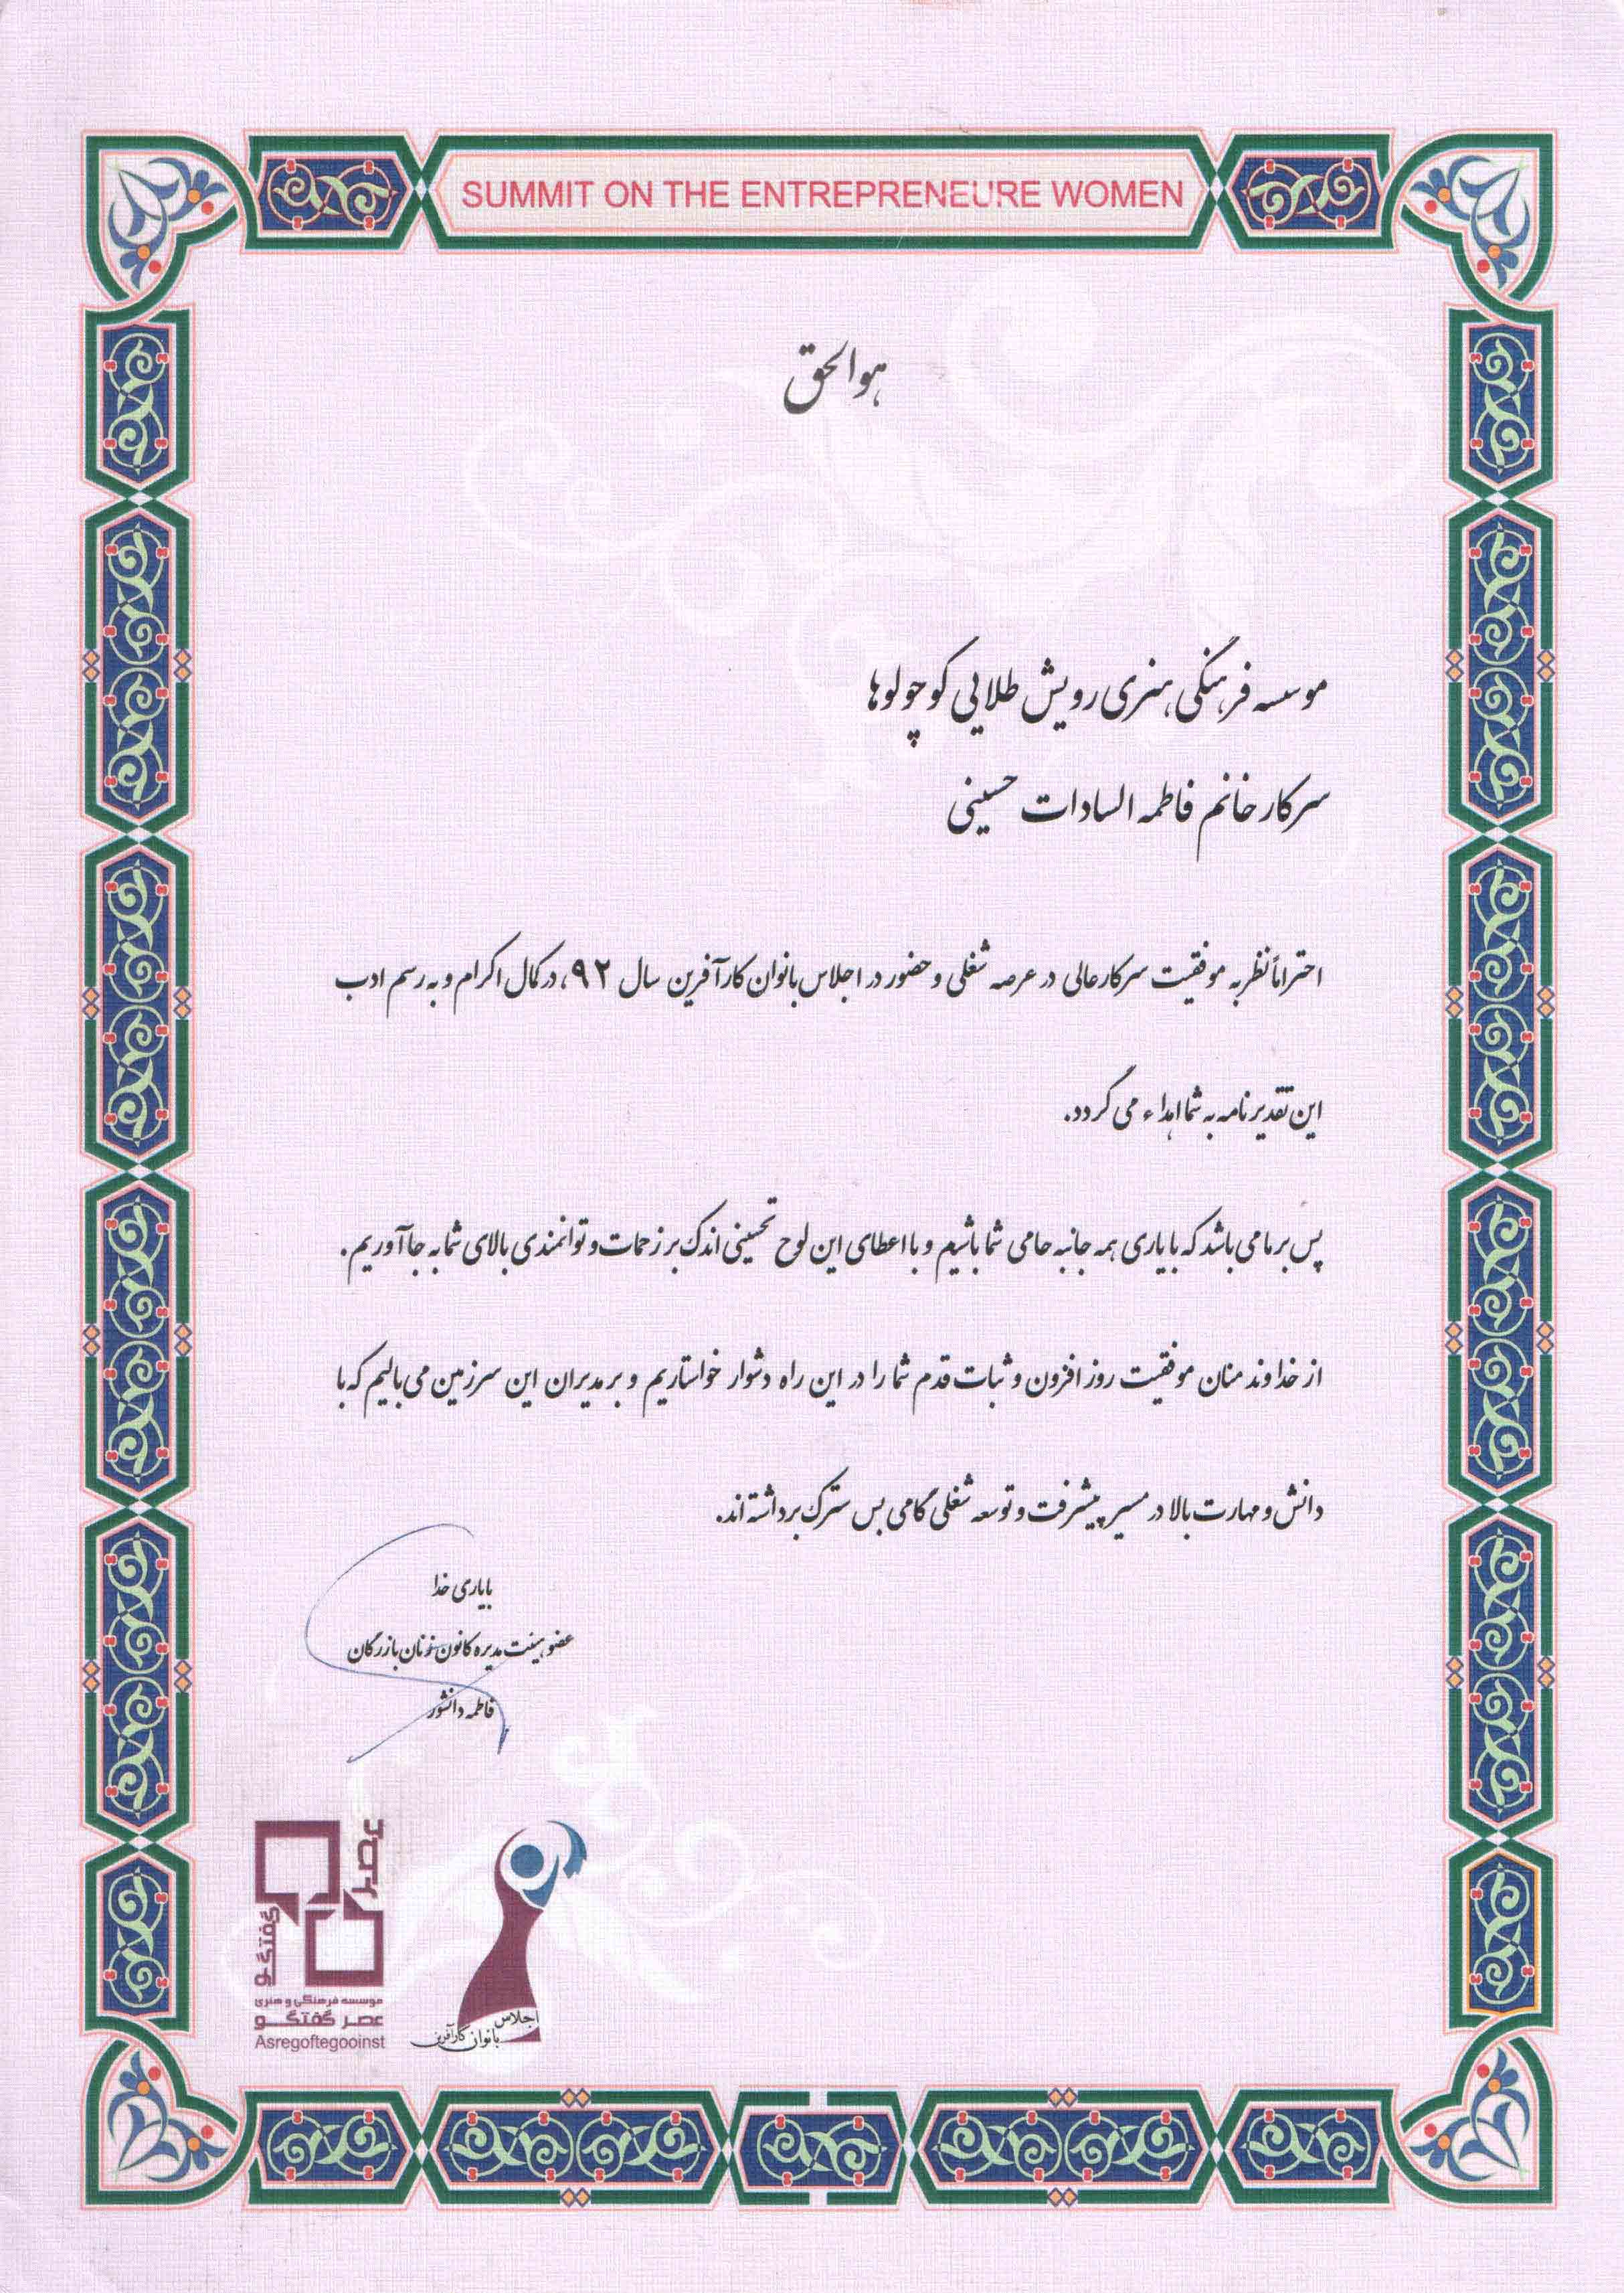 SUMMIT ON THE ENTREPRENEURE WOMEN
هوالحق
موسسه فرهنگی هنری رویش طلایی کوچولوها
سرکار خانم فاطمه السادات حسینی
احتراماً نظر به موفقیت سرکار عالی در عرصه شغلی و حضور در اجلاس بانوان کارآفرین سال ۹۲، در کمال اکرام و به رسم ادب
این تقدیر نامه به شما اهداء می گردد.
پس بر ما می باشد که با یاری همه جانبه حامی شما باشیم و با اعطای این لوح تحسینی اندک بر زحمات و توانمندی بالای شما به جا آوریم.
از خداوند منان موفقیت روز افزون و ثبات قدم شما را در این راه دشوار خواستاریم و بر مدیران این سرزمین می بالیم که با
دانش و مهارت بالا در مسیر پیشرفت و توسعه شغلی گامی بس سترک برداشته اند.
با یاری خدا
عضو هیئت مدیره کانون زنان بازرگان
فاطمه دانشور
عصر
گفتگو
موسسه فرهنگی و هنری
عصر گفتگو
Asregoftegooinst
اجلاس
بانوان کارآفرین